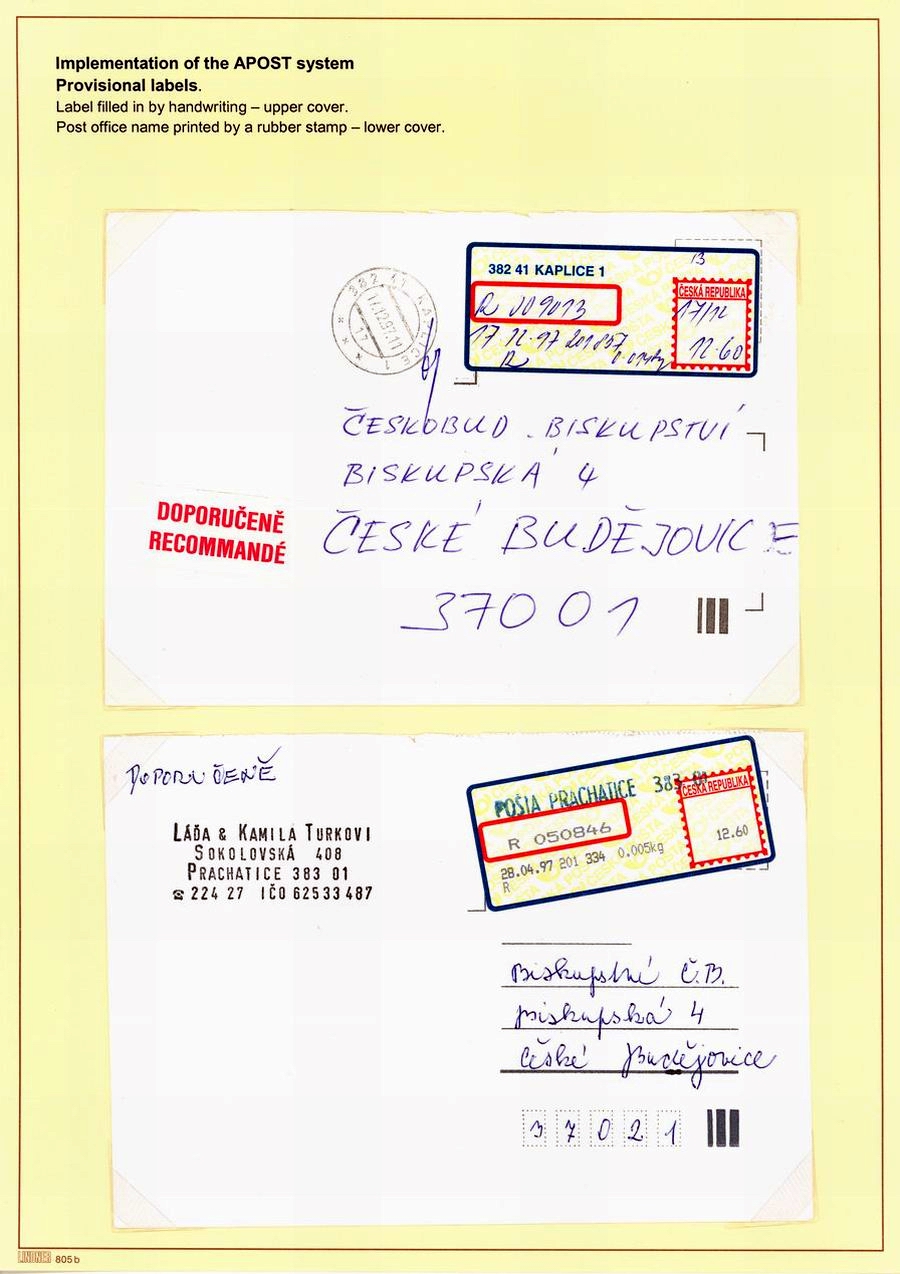 Implementation of the APOST system
Provisional labels.
Label filled in by handwriting – upper cover.
Post office name printed by a rubber stamp – lower cover.
13
382 41 KAPLICE 1
ČESKÁ REPUBLIKA
R 009013
17/12
17.12.97 201857
12.60
R
382 41 KAPLICE 1
17.12.97.11
17
ČESKOBUD. BISKUPSTVÍ
BISKUPSKÁ 4
DOPORUČENĚ
RECOMMANDÉ
ČESKÉ BUDĚJOVICE
37001
DOPORUČENĚ
POŠTA PRACHATICE 383 01
ČESKÁ REPUBLIKA
R 050846
12.60
28.04.97 201 334 0.005kg
R
LÁĎA & KAMILA TURKOVI
SOKOLOVSKÁ 408
PRACHATICE 383 01
☎ 224 27 IČO 62533487
Biskupství Č.B.
Biskupská 4
České Budějovice
37021
LINDNER 805 b